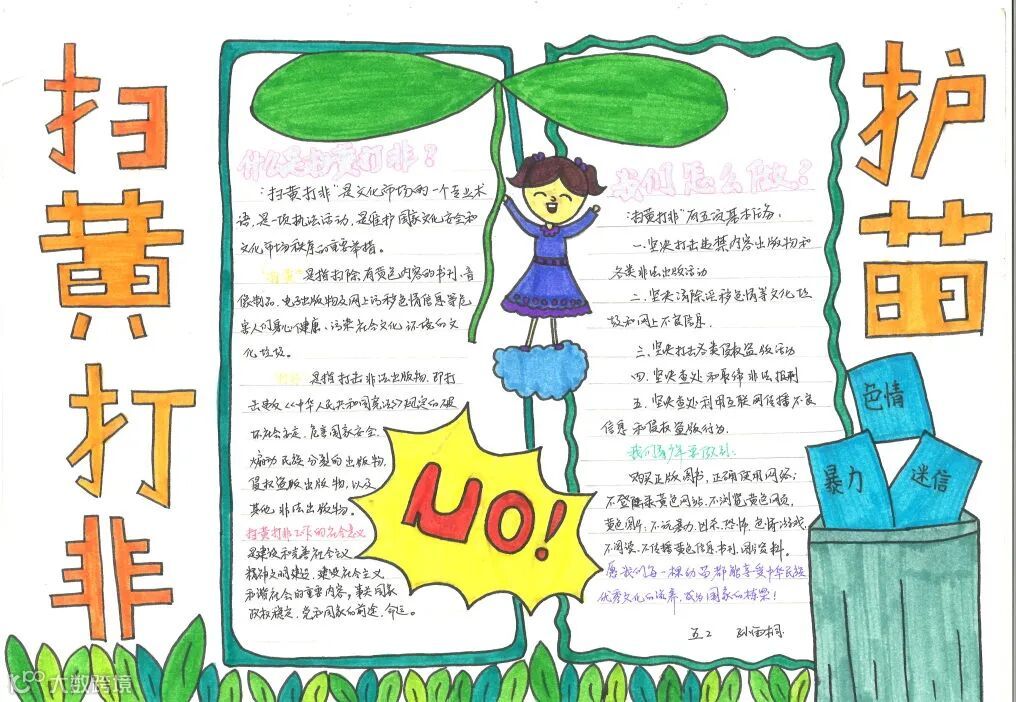 扫黄打非
护苗
什么是扫黄打非？
“扫黄打非”是文化市场的一个专业术
语，是一项执法活动，是维护国家文化安全和
文化市场秩序的重要举措。
“扫黄”是指扫除有黄色内容的书刊、音
像制品、电子出版物及网上淫秽色情信息等危
害人们身心健康、污染社会文化环境的文
化垃圾。
“打非”是指打击非法出版物，即打
击违反《中华人民共和国宪法》规定的破
坏社会安定、危害国家安全、
煽动民族分裂的出版物，
侵权盗版出版物，以及
其他非法出版物。
扫黄打非工作的社会意义
是建设和完善社会主义
精神文明建设，建设社会主义
和谐社会的重要内容，事关国家
政权稳定、党和国家的前途、命运。
NO!
我们怎么做？
“扫黄打非”有五项基本任务：
一、坚决打击违禁内容出版物和
各类非法出版活动
二、坚决清除淫秽色情等文化垃
圾和网上不良信息.
三、坚决打击各类侵权盗版活动
四、坚决查处和取缔非法报刊
五、坚决查处利用互联网传播不良
信息和侵权盗版行为.
我们青少年要做到:
购买正版图书，正确使用网络；
不登陆黄色网站，不浏览黄色网页，
黄色图片，不玩暴力、凶杀、恐怖、色情游戏，
不阅读、不传播黄色信息书刊、图资料。
愿我们每一棵幼苗都能享受中华民族
优秀文化的滋养，成为国家的栋梁！
五.2
色情
暴力
迷信
大数跨境